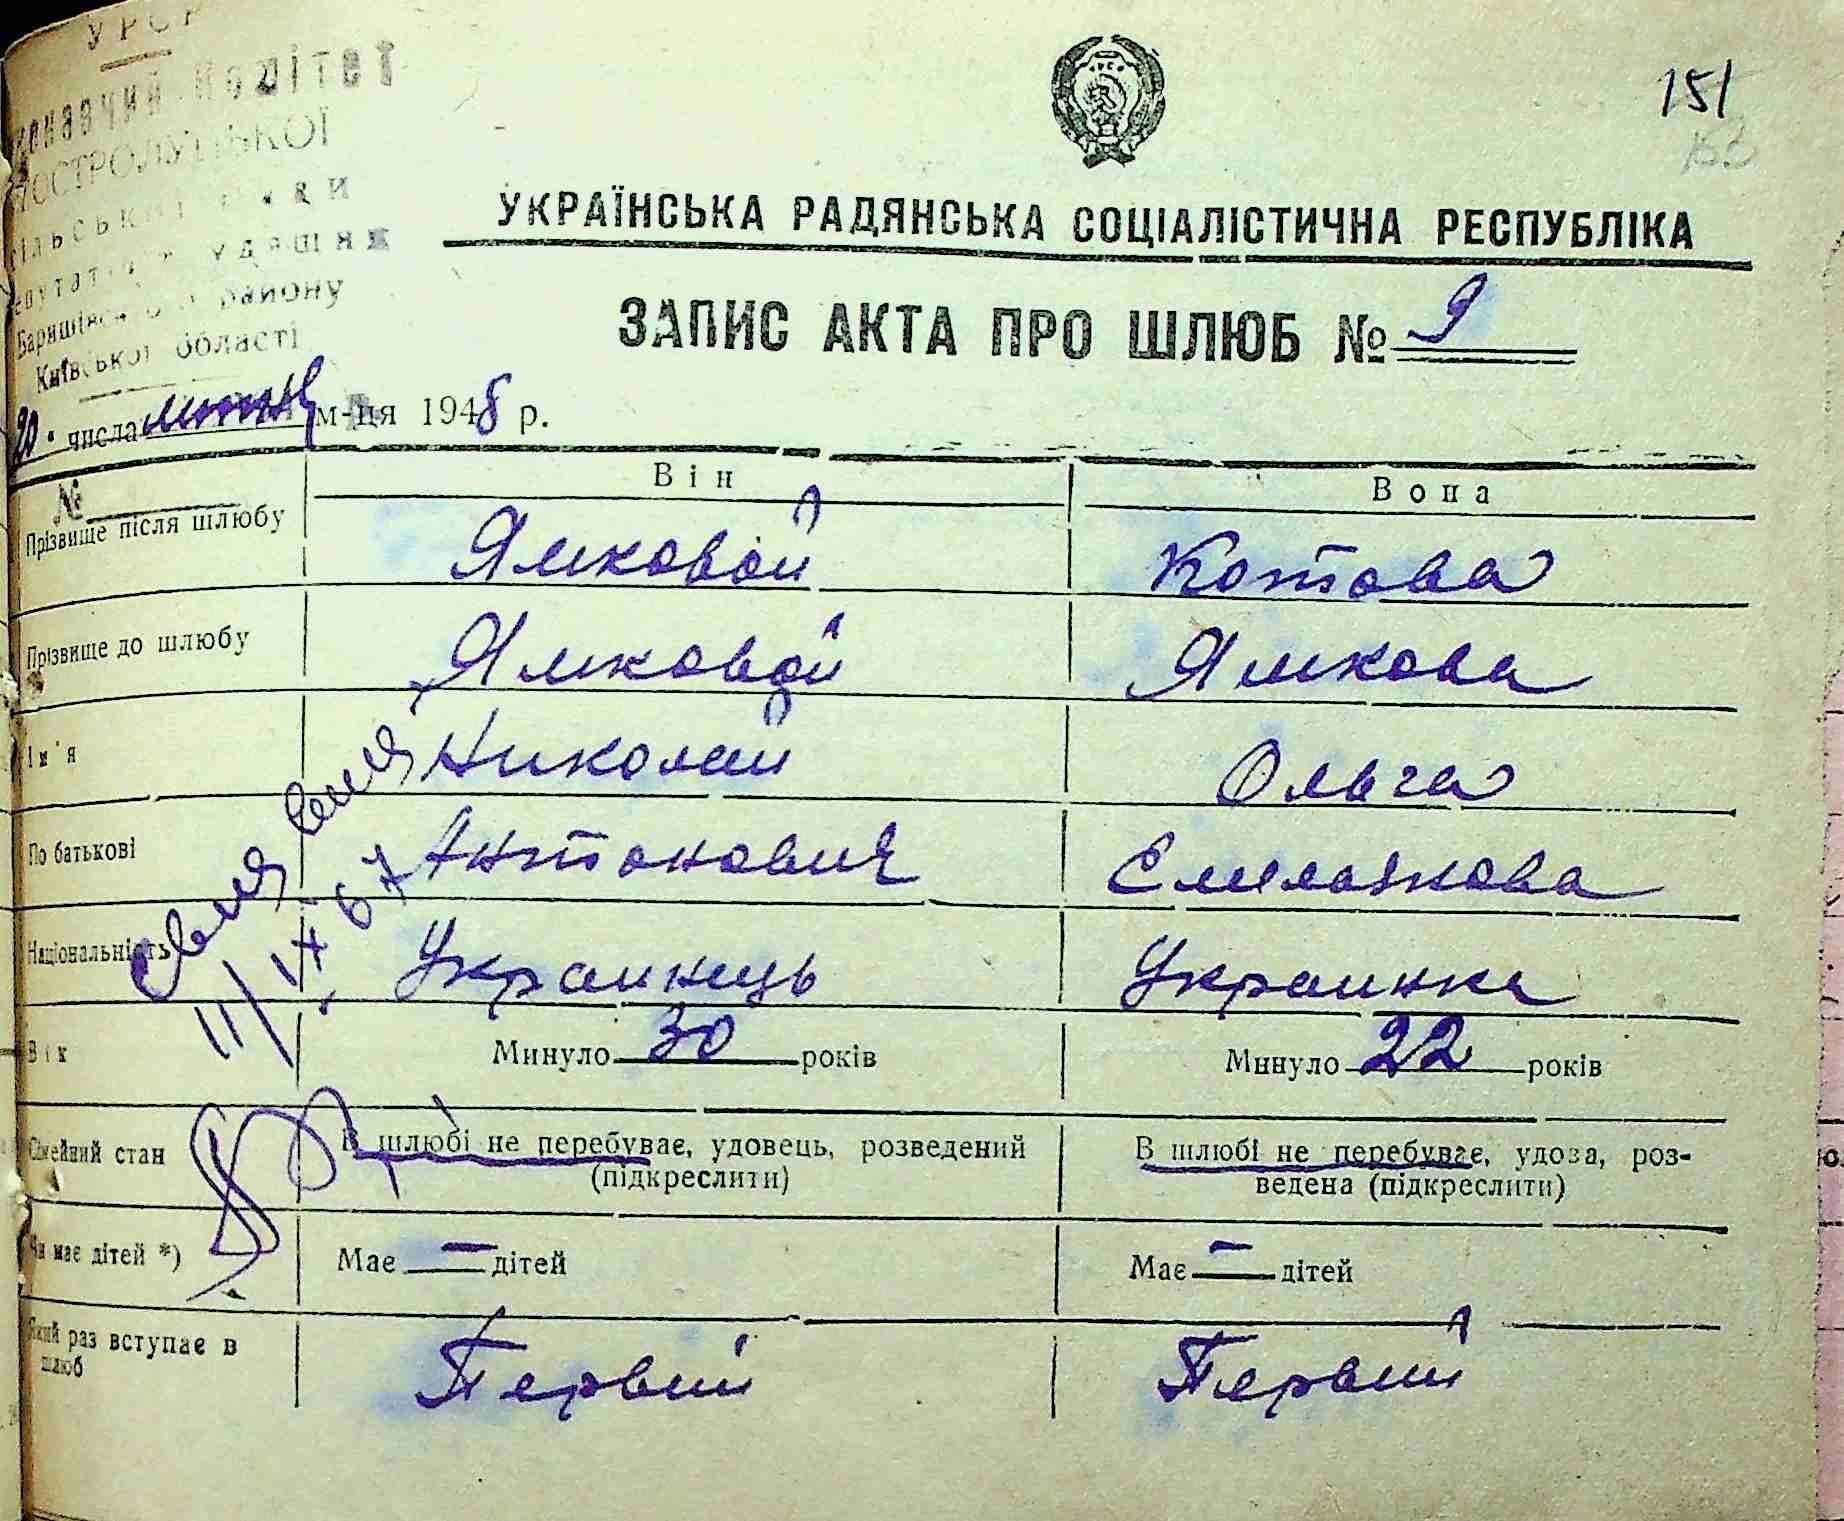 УРСР
Комітет
сільської
Київської області
151
УКРАЇНСЬКА РАДЯНСЬКА СОЦІАЛІСТИЧНА РЕСПУБЛІКА
ЗАПИС АКТА ПРО ШЛЮБ № 9
20 числа м-ця 1948 р.
№
Він Вона
Прізвище після шлюбу Ямковой Котова
Прізвище до шлюбу Ямковой Ямкова
Ім'я Николай Ольга
По батькові Антонович
Національність Украинець Украинка
Вік Минуло 30 років Минуло 22 років
11/IX 67
Сімейний стан В шлюбі не перебуває, удовець, розведений (підкреслити) В шлюбі не перебуває, удова, роз-
ведена (підкреслити)
Чи має дітей *) Має — дітей Має — дітей
Який раз вступає в шлюб Первий Первий